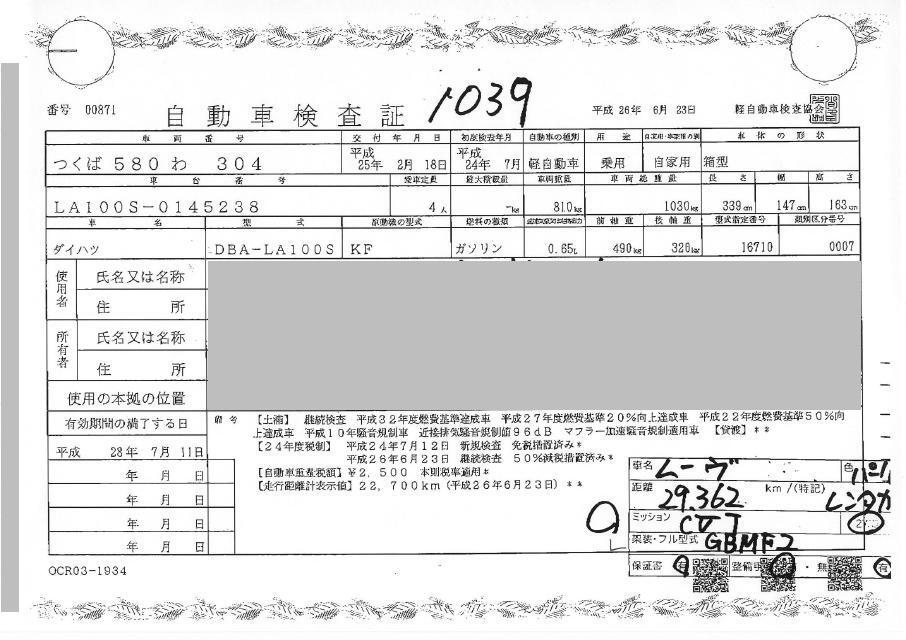 1039
番号 00871 自動車検査証 平成 26年 6月 23日 軽自動車検査協会
車両番号 交付年月日 初度検査年月 自動車の種別 用途 自家用・事業用の別 車体の形状
つくば 580 わ 304 平成 25年 2月 18日 平成 24年 7月 軽自動車 乗用 自家用 箱型
車台番号 乗車定員 最大積載量 車両重量 車両総重量 長さ 幅 高さ
LA100S-0145238 4人 -kg 810kg 1030kg 339cm 147cm 163cm
車名 型式 原動機の型式 燃料の種類 前軸重 後軸重 型式指定番号 類別区分番号
ダイハツ DBA-LA100S KF ガソリン 0.65L 490kg 320kg 16710 0007
使用者 氏名又は名称
住所
所有者 氏名又は名称
住所
使用の本拠の位置
有効期間の満了する日
平成 28年 7月 11日
年 月 日
年 月 日
年 月 日
年 月 日
備考 【土浦】 継続検査 平成32年度燃費基準達成車 平成27年度燃費基準20%向上達成車 平成22年度燃費基準50%向
上達成車 平成10年騒音規制車 近接排気騒音規制値96dB マフラー加速騒音規制適用車 【貸渡】**
【24年度税制】 平成24年7月12日 新規検査 免税措置済み*
平成26年6月23日 継続検査 50%減税措置済み*
[自動車重量税額] ¥2,500 本則税率適用*
[走行距離計表示値] 22,700km (平成26年6月23日) **
車名 ムーヴ 色 パール
距離 29.362 km/(特記) レンタカ
ミッション CVT 2
架装・フル型式 GBMF2
保証書 有 整備 ・無 有
OCR03-1934